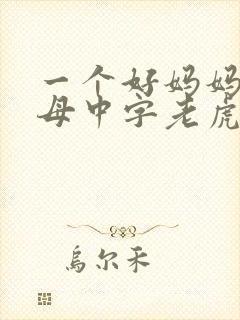 一个好妈妈
母中字老虎
乌尔禾